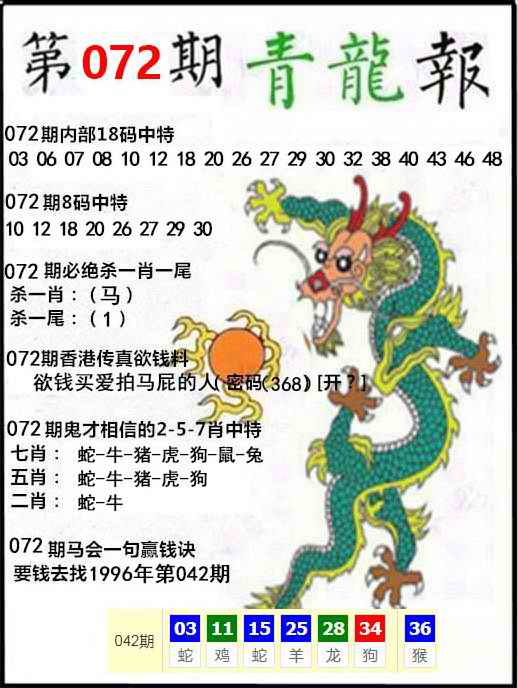 第072期 青龍報
072期内部18码中特
03 06 07 08 10 12 18 20 26 27 29 30 32 38 40 43 46 48
072期8码中特
10 12 18 20 26 27 29 30
072期必绝杀一肖一尾
杀一肖:(马)
杀一尾:(1)
072期香港传真欲钱料
欲钱买爱拍马屁的人(密码(368)[开?]
072期鬼才相信的2-5-7肖中特
七肖: 蛇-牛-猪-虎-狗-鼠-兔
五肖: 蛇-牛-猪-虎-狗
二肖: 蛇-牛
072期马会一句赢钱诀
要钱去找1996年第042期
042期 03 11 15 25 28 34 36
蛇 鸡 蛇 羊 龙 狗 猴